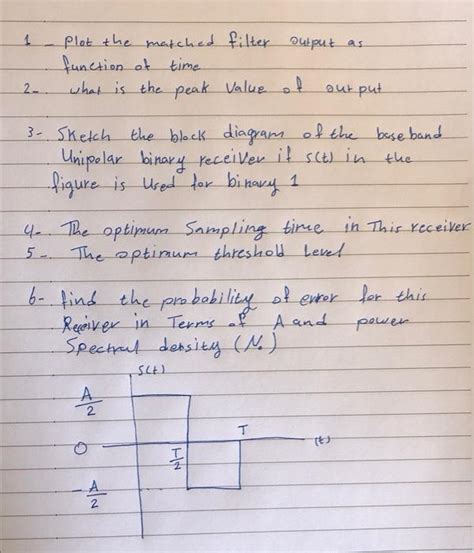 1 - Plot the matched filter output as
function of time
2-. what is the peak value of output
3- Sketch the block diagram of the baseband
Unipolar binary receiver if s(t) in the
figure is Used for binary 1
4- The optimum Sampling time in This receiver
5- The optimum threshold Level
6- find the probability of error for this
Receiver in Terms of A and power
Spectral density (N.)
S(t)
A/2
T
O
T/2
(t)
-A/2